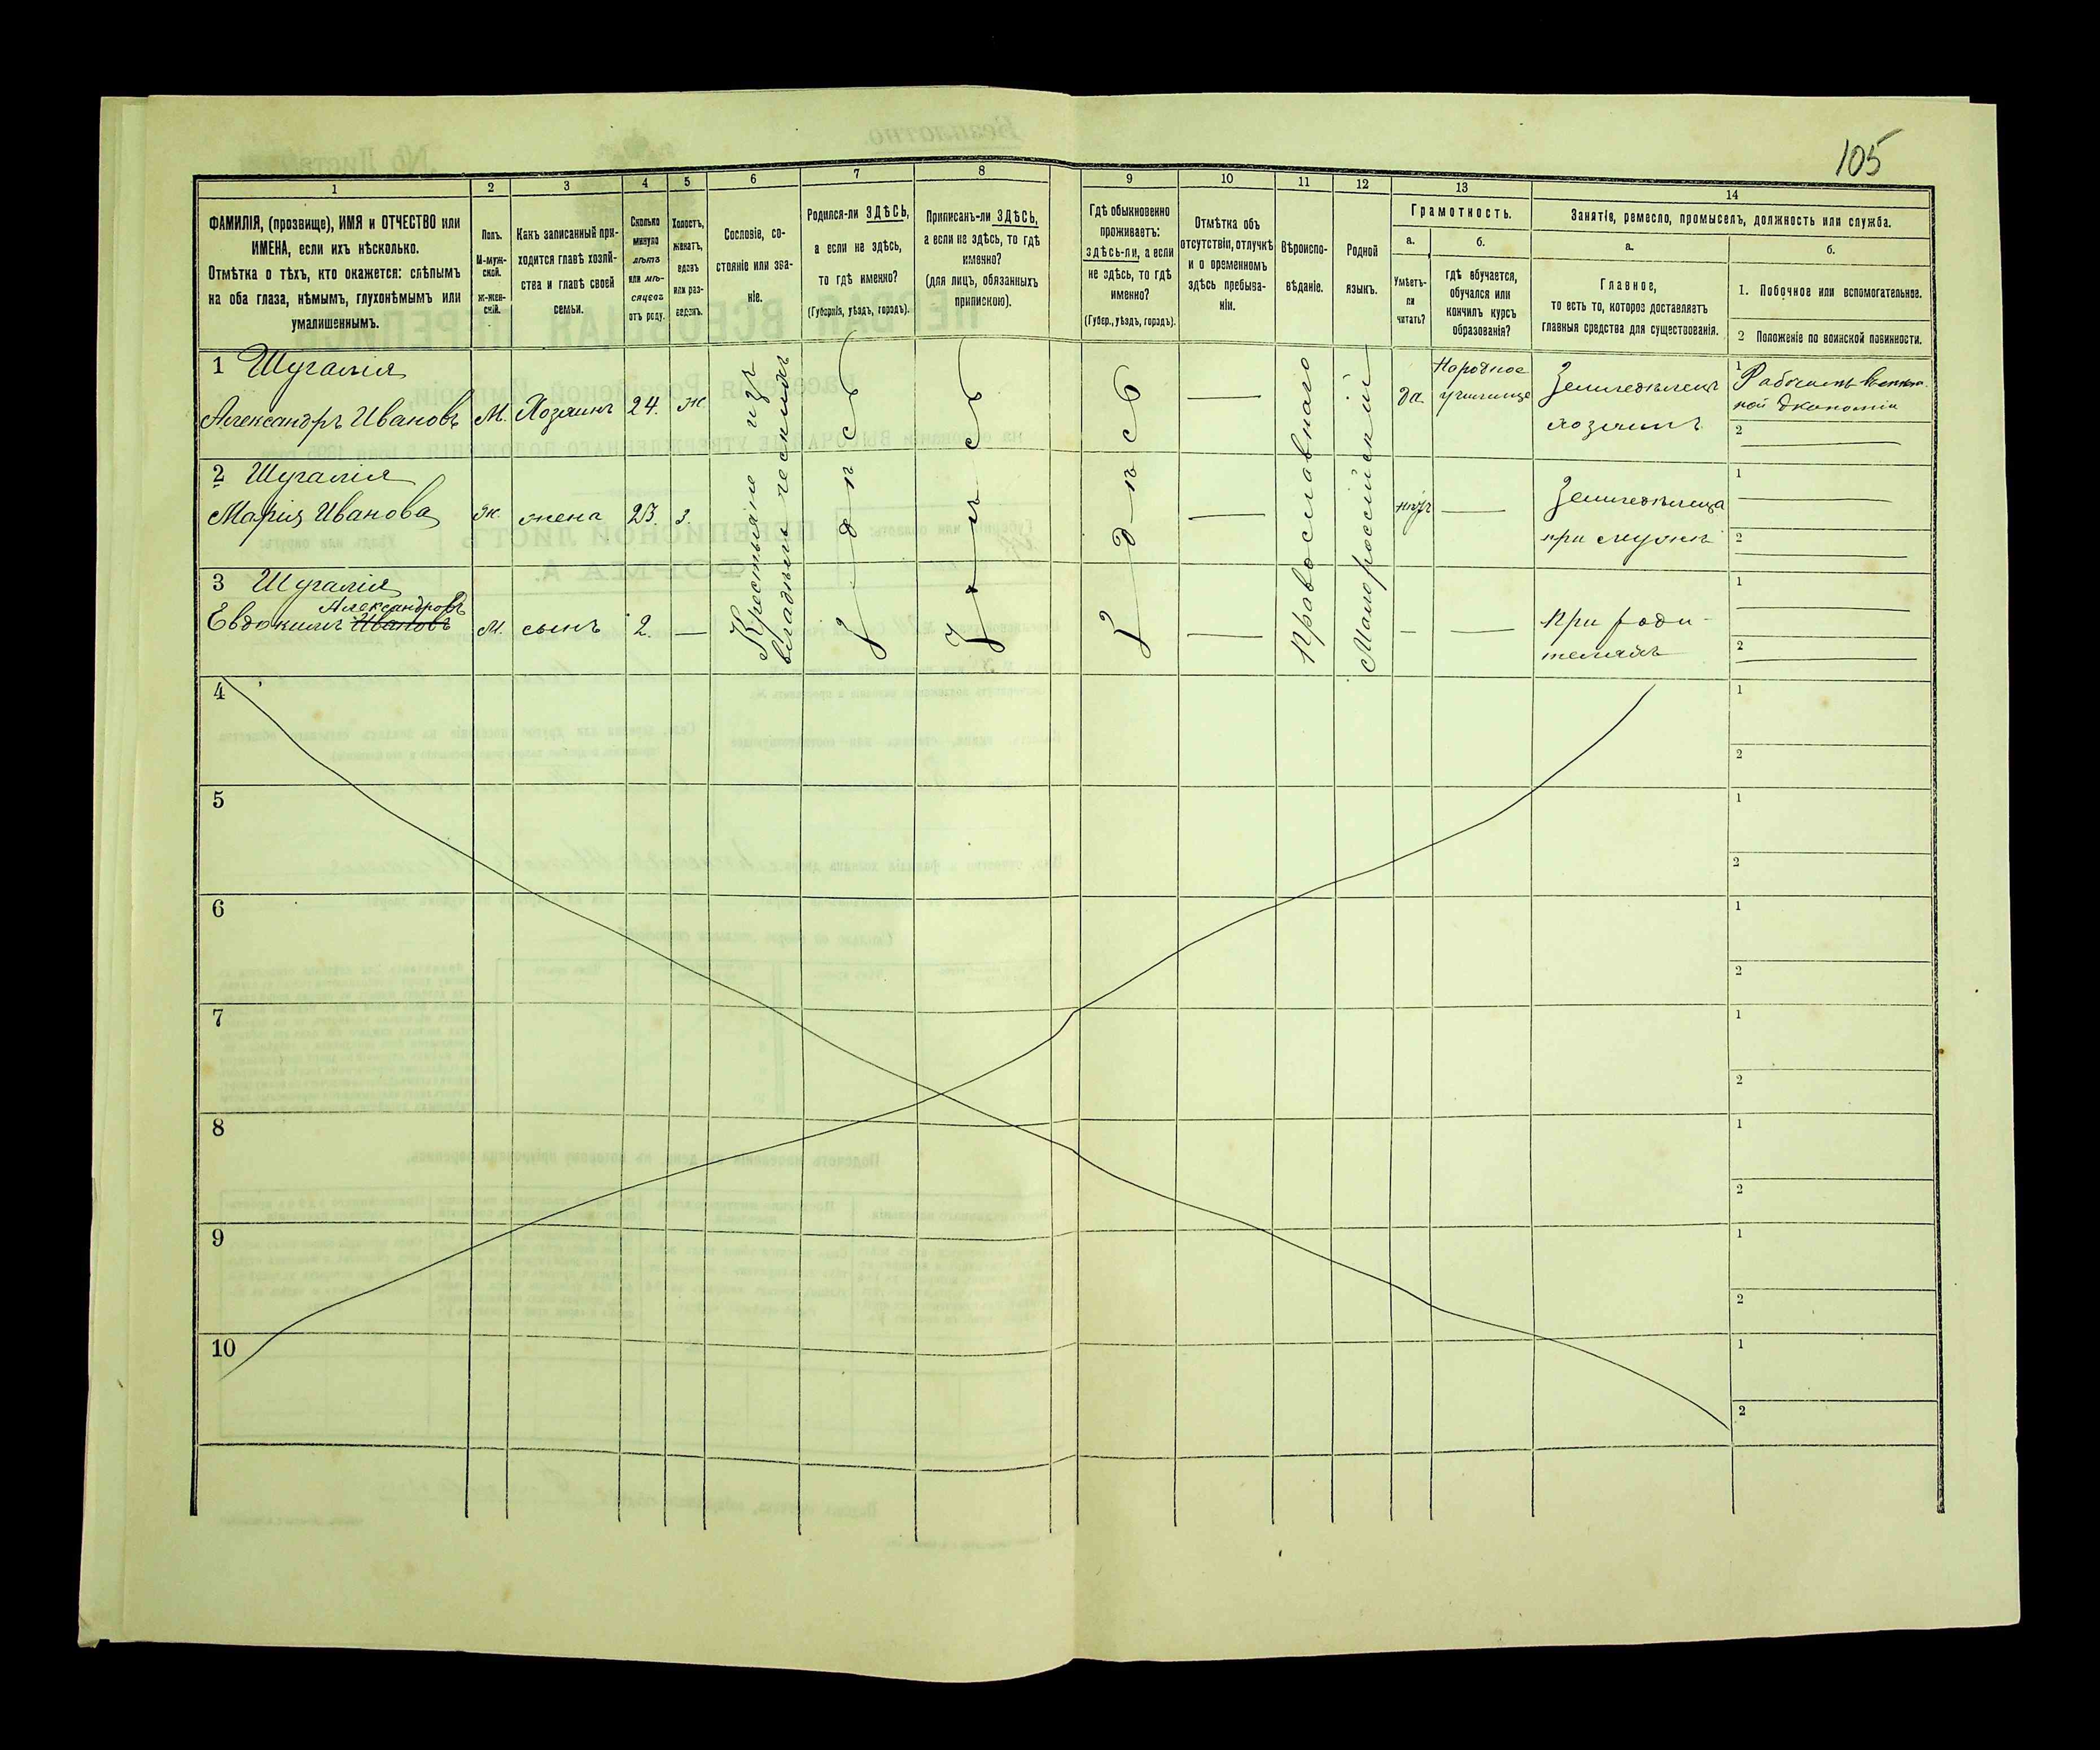 105
1 2 3 4 5 6 7 8 9 10 11 12 13 14
ФАМИЛІЯ, (прозвище), ИМЯ и ОТЧЕСТВО или
ИМЕНА, если ихъ нѣсколько.
Отмѣтка о тѣхъ, кто окажется: слѣпымъ
на оба глаза, нѣмымъ, глухонѣмымъ или
умалишеннымъ.
Полъ.
М-муж-
ской.
ж-жен-
скій.
Какъ записанный при-
ходится главѣ хозяй-
ства и главѣ своей
семьи.
Сколько
минуло
лѣтъ
или мѣ-
сяцевъ
отъ роду.
Холостъ,
женатъ,
вдовъ
или раз-
веденъ.
Сословіе, со-
стояніе или зва-
ніе.
Родился-ли ЗДѢСЬ,
а если не здѣсь,
то гдѣ именно?
(Губернія, уѣздъ, городъ).
Приписанъ-ли ЗДѢСЬ,
а если не здѣсь, то гдѣ
именно?
(для лицъ, обязанныхъ
припискою).
Гдѣ обыкновенно
проживаетъ:
здѣсь-ли, а если
не здѣсь, то гдѣ
именно?
(Губер., уѣздъ, городъ).
Отмѣтка объ
отсутствіи, отлучкѣ
и о временномъ
здѣсь пребыва-
ніи.
Вѣроиспо-
вѣданіе.
Родной
языкъ.
Грамотность.
а.
Умѣетъ-
ли
читать?
б.
гдѣ обучается,
обучался или
кончилъ курсъ
образованія?
Занятіе, ремесло, промыселъ, должность или служба.
а.
Главное,
то есть то, которое доставляетъ
главныя средства для существованія.
б.
1. Побочное или вспомогательное.
2 Положеніе по воинской повинности.
1 Шугалія
Александръ Ивановъ М. Хозяинъ 24. ж.
да. Народное
училище
Земледѣлецъ
хозяинъ
1 Рабочимъ
ной экономіи
2
2 Шугалія
Марія Иванова ж. жена 23. з.
нѣтъ —
Земледѣлица
при мужѣ
1
2
3 Шугалія
Александровъ
Евдокимъ Ивановъ М. сынъ 2. —
При роди-
теляхъ
1
2
Крестьяне изъ
владѣльческихъ
здѣсь
здѣсь
здѣсь
Православнаго
Малороссійскій
4 1
2
5 1
2
6 1
2
7 1
2
8 1
2
9 1
2
10 1
2